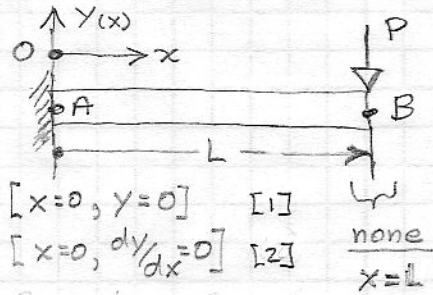 Y(x)
P
O
x
A
B
L
[x=0, y=0] [1]
[x=0, dy/dx=0] [2]
none
x=L